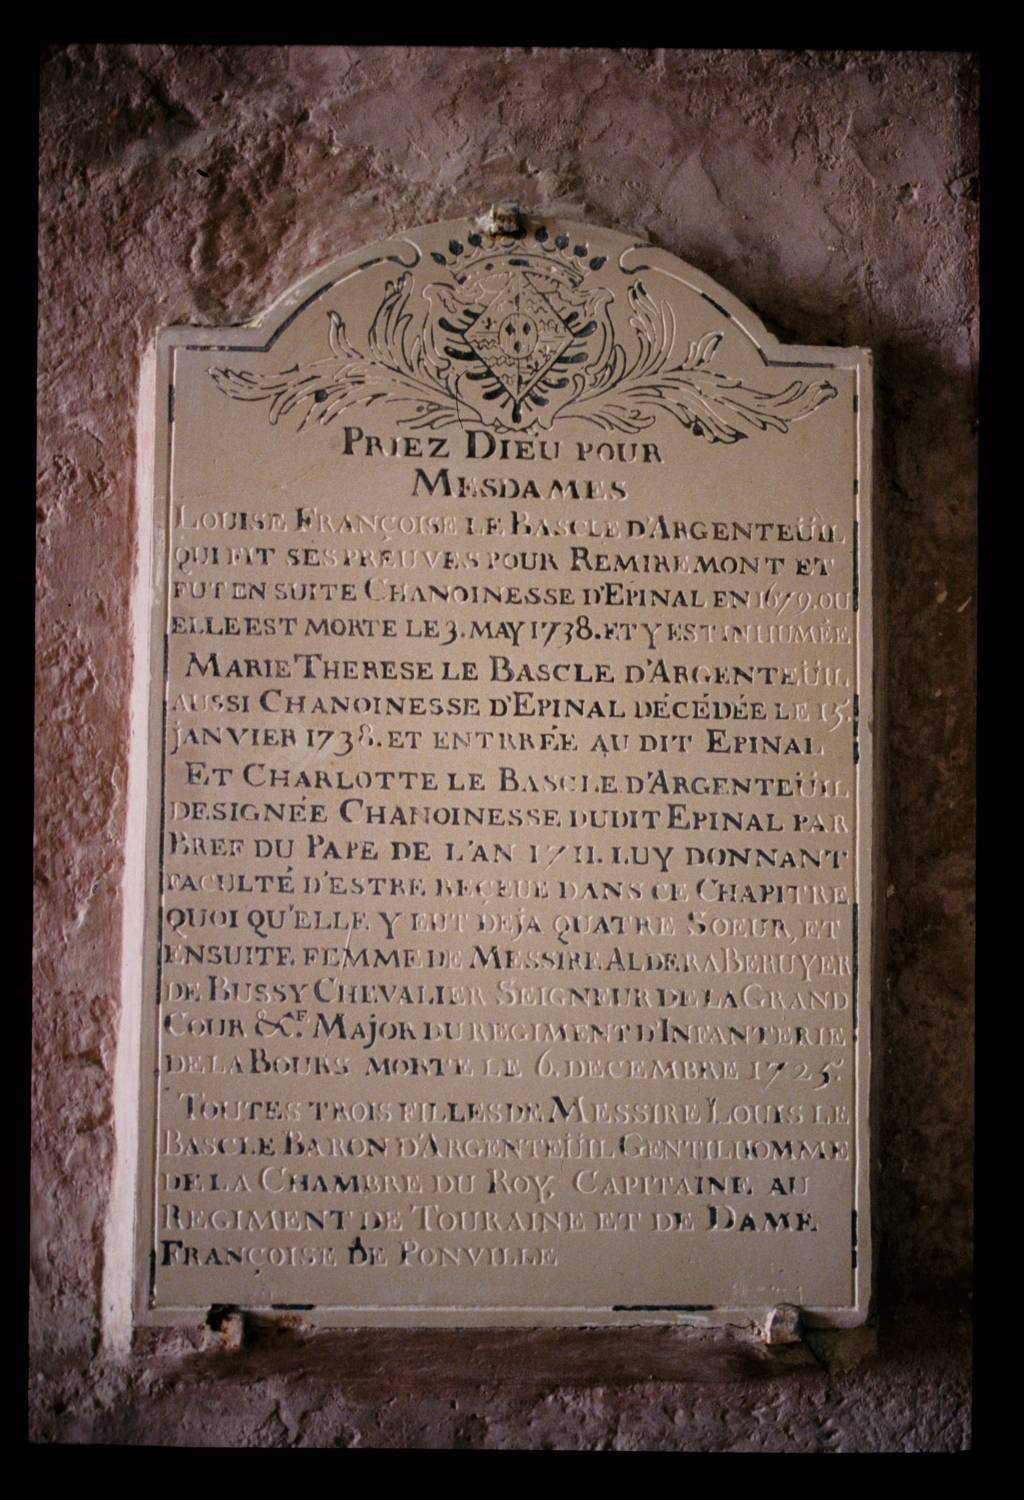 PRIEZ DIEU POUR
MESDAMES
LOUISE FRANÇOISE LE BASCLE D'ARGENTEÜIL
QUI FIT SES PREUVES POUR REMIREMONT ET
FUT EN SUITE CHANOINESSE D'EPINAL EN 1679. OU
ELLE EST MORTE LE 3. MAY 1738. ET Y EST INHUMÉE
MARIE THERESE LE BASCLE D'ARGENTEÜIL
AUSSI CHANOINESSE D'EPINAL DÉCÉDÉE LE 15.
JANVIER 1738. ET ENTRRÉE AU DIT EPINAL
ET CHARLOTTE LE BASCLE D'ARGENTEÜIL
DESIGNÉE CHANOINESSE DUDIT EPINAL PAR
BREF DU PAPE DE L'AN 1711. LUY DONNANT
FACULTÉ D'ESTRE REÇEUE DANS CE CHAPITRE
QUOI QU'ELLE Y EUT DEJA QUATRE SOEUR, ET
ENSUITE FEMME DE MESSIRE ALDERA BERUYER
DE BUSSY CHEVALIER SEIGNEUR DE LA GRAND
COUR &C.E MAJOR DU REGIMENT D'INFANTERIE
DE LA BOURS MORTE LE 6. DECEMBRE 1725.
TOUTES TROIS FILLES DE MESSIRE LOUIS LE
BASCLE BARON D'ARGENTEÜIL GENTILHOMME
DE LA CHAMBRE DU ROY, CAPITAINE AU
REGIMENT DE TOURAINE ET DE DAME
FRANÇOISE DE PONVILLE